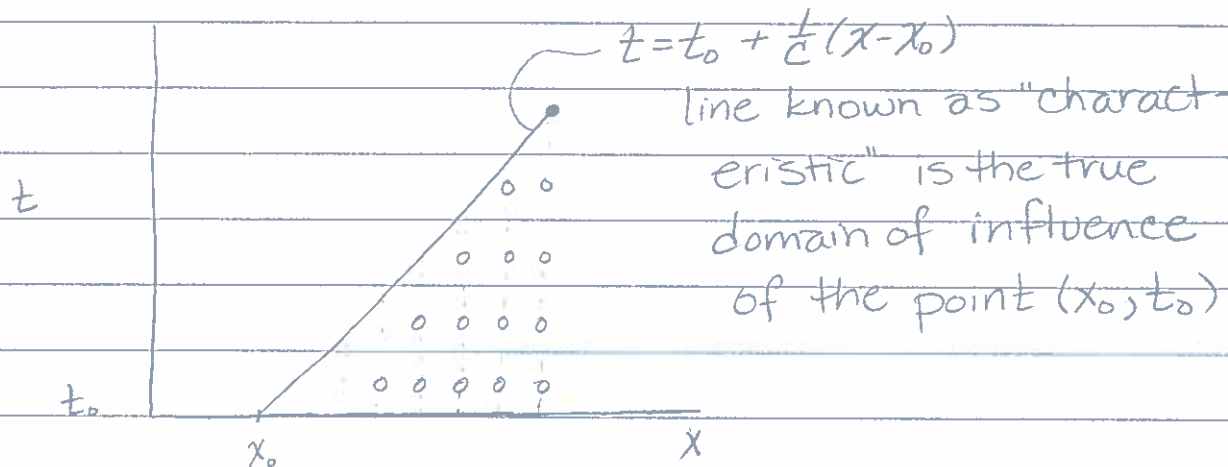 t = t₀ + 1/c (x-x₀)
line known as "charact-
eristic" is the true
domain of influence
of the point (x₀, t₀)
t
t₀
x₀
x